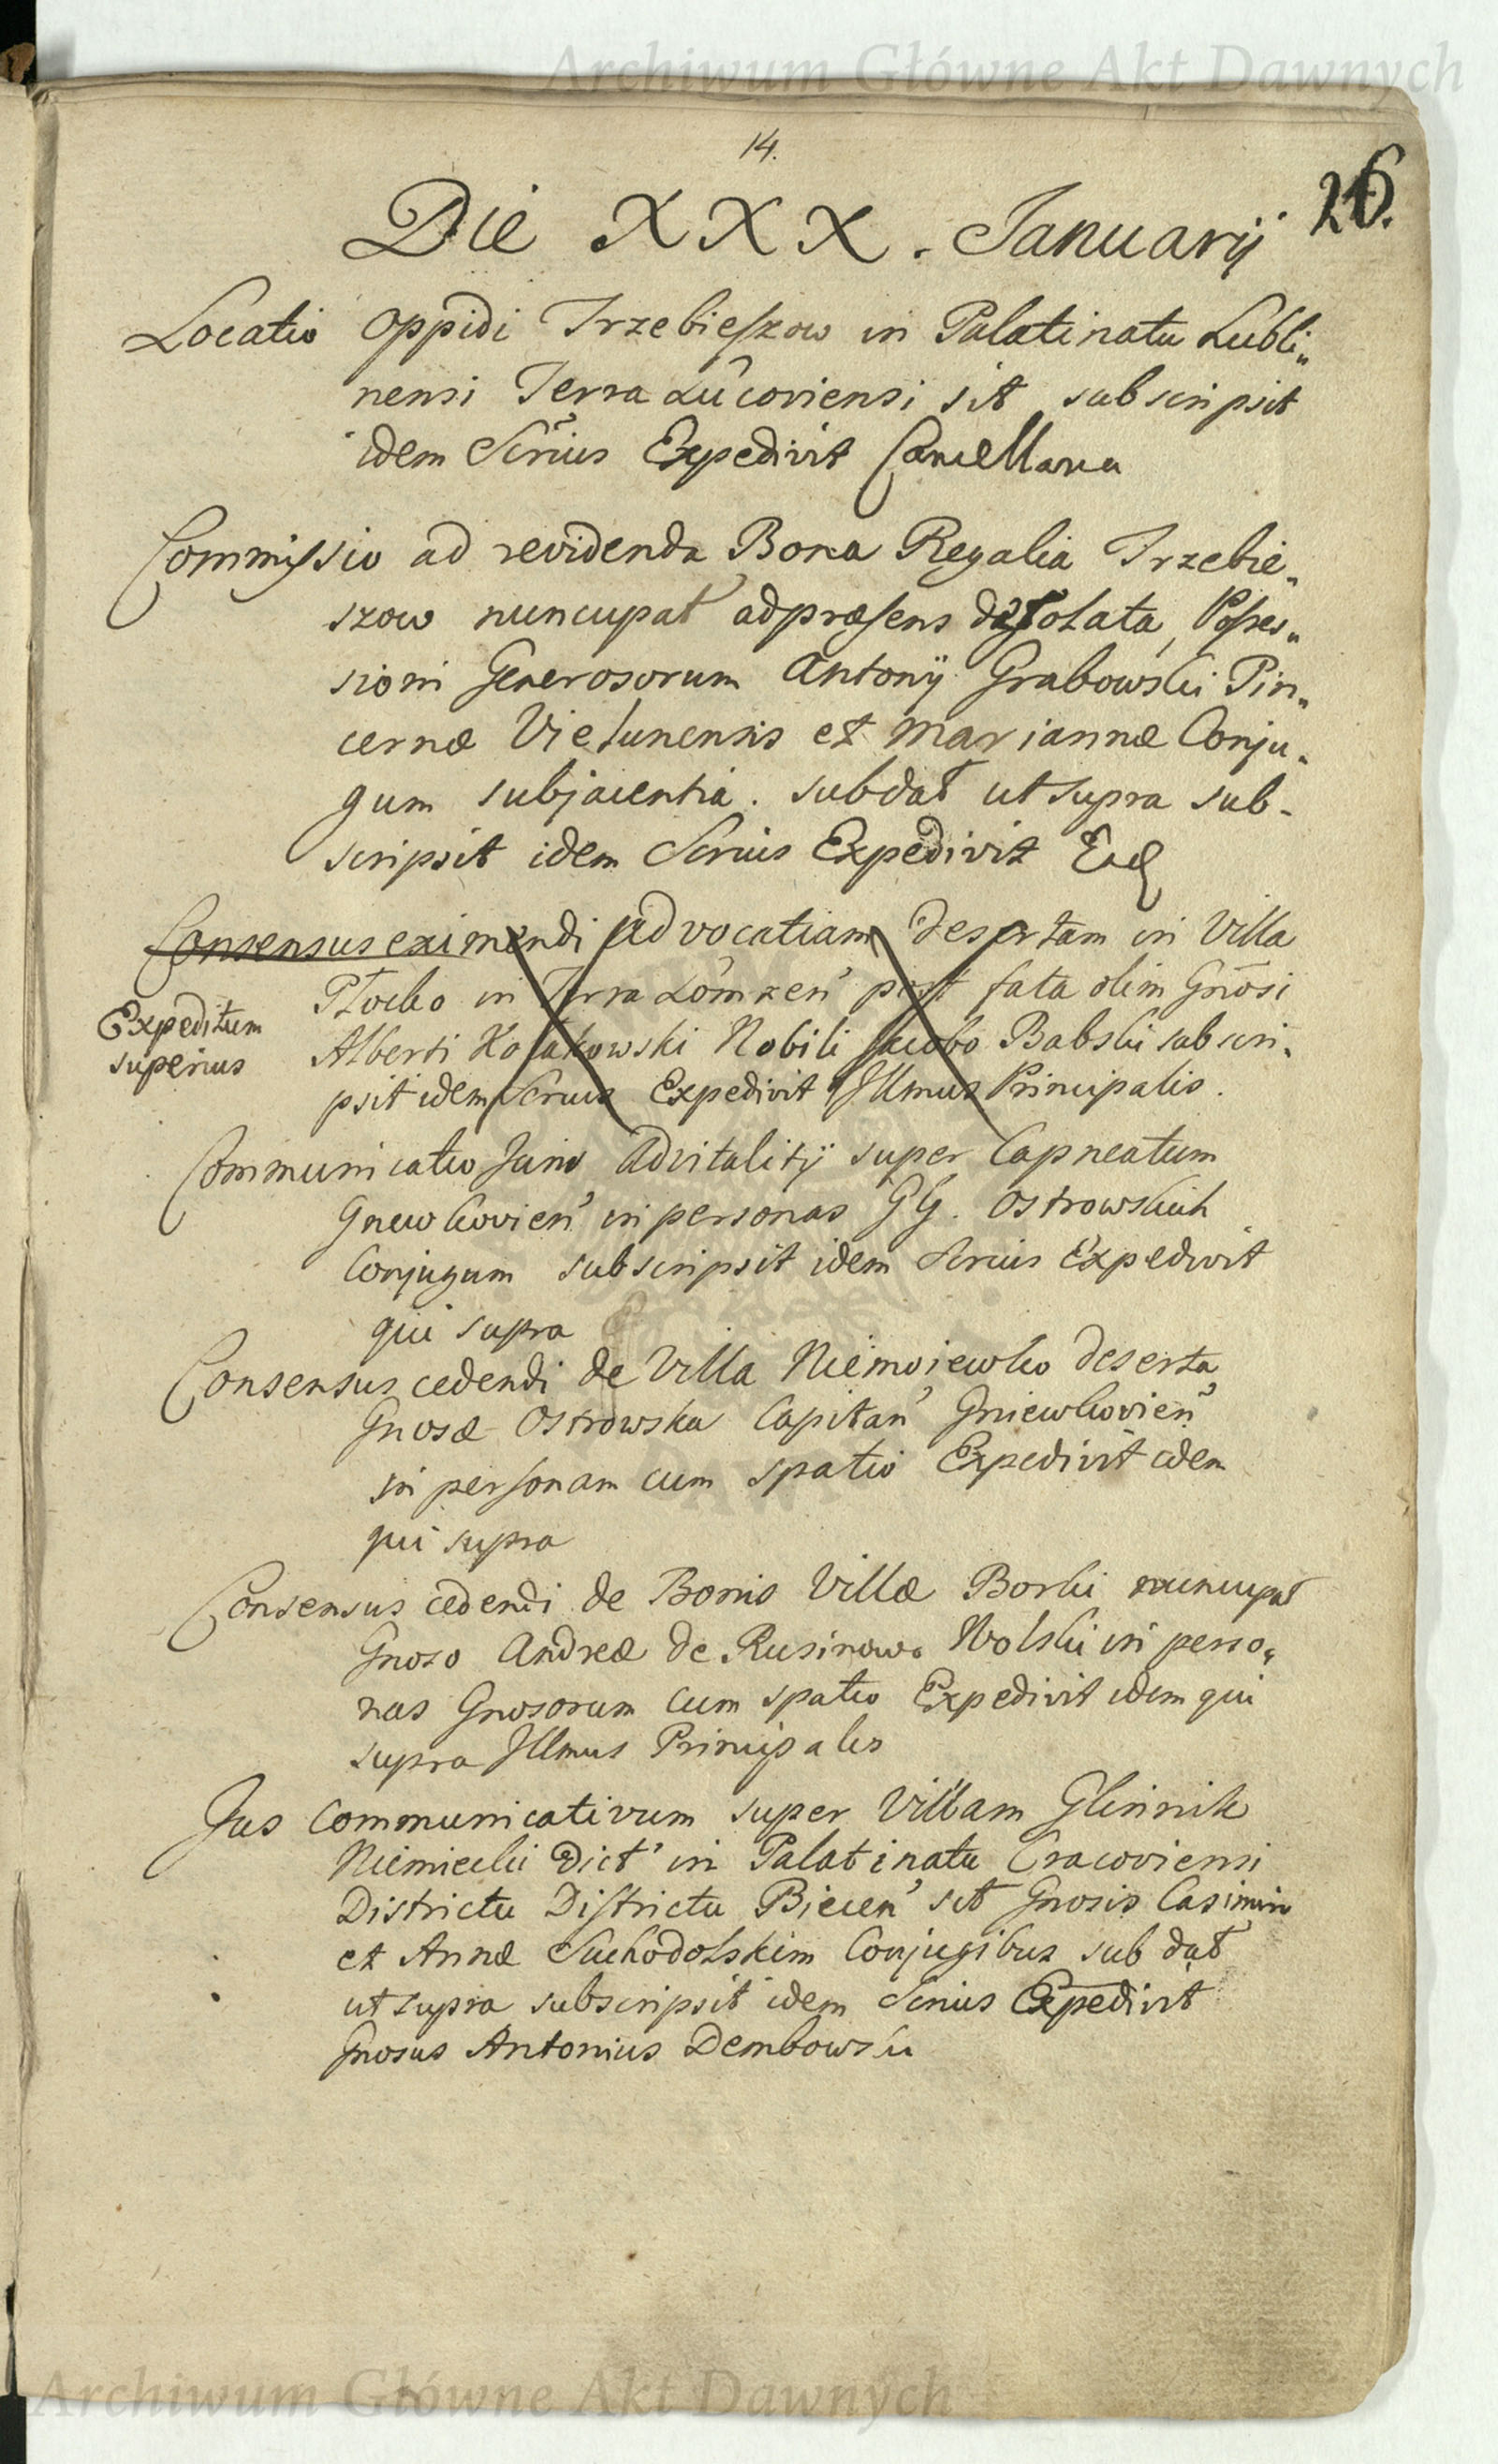 Archiwum Główne Akt Dawnych
14.
26.
Die XXX. Januarij
Locatio oppidi Trzebieszow in Palatinatu Lubli„
nensi Terra Lucoviensi sit subscripsit
idem Srius Expedivit Cancellaria
Commissio ad revidenda Bona Regalia Trzebie„
szow nuncupat adpræsens desolata, Posses„
sioni Generosorum Antonij Grabowski Pin„
cernæ Vielunensis et Mariannæ Conju„
gum subjacentia. sub dat ut supra sub-
scripsit idem Srius Expedivit
Consensus eximendi advocatiam desertam in Villa
Płocko in Terra Lomzen post fata olim Gnosi
Expeditum
superius
Alberti Kołakowski Nobili Jacobo Babski subscri„
psit idem Srius Expedivit Illmus Principalis.
Communicatio Juris Advitalitij super Capneatum
Gnewkovien in personas GG. Ostrowskich
Conjugum subscripsit idem Srius Expedivit
qui supra
Consensus cedendi de Villa Niemojewko deserta
Gnosæ Ostrowska Capitan Gniewkovien
in personam cum spatio Expedivit idem
qui supra
Consensus cedendi de Bonis Villæ Borki nuncupat
Gnoso Andreæ de Rusinowo Wolski in perso„
nas Gnosorum cum spatio Expedivit idem qui
supra Illmus Principalis
Jus Communicativum super Villam Glinnik
Niemiecki dict in Palatinatu Cracoviensi
Districtu Districtu Biecen sit Gnosis Casimiro
et Annæ Suchodolskim Conjugibus sub dat
ut supra subscripsit idem Srius Expedivit
Gnosus Antonius Dembowski
Archiwum Główne Akt Dawnych